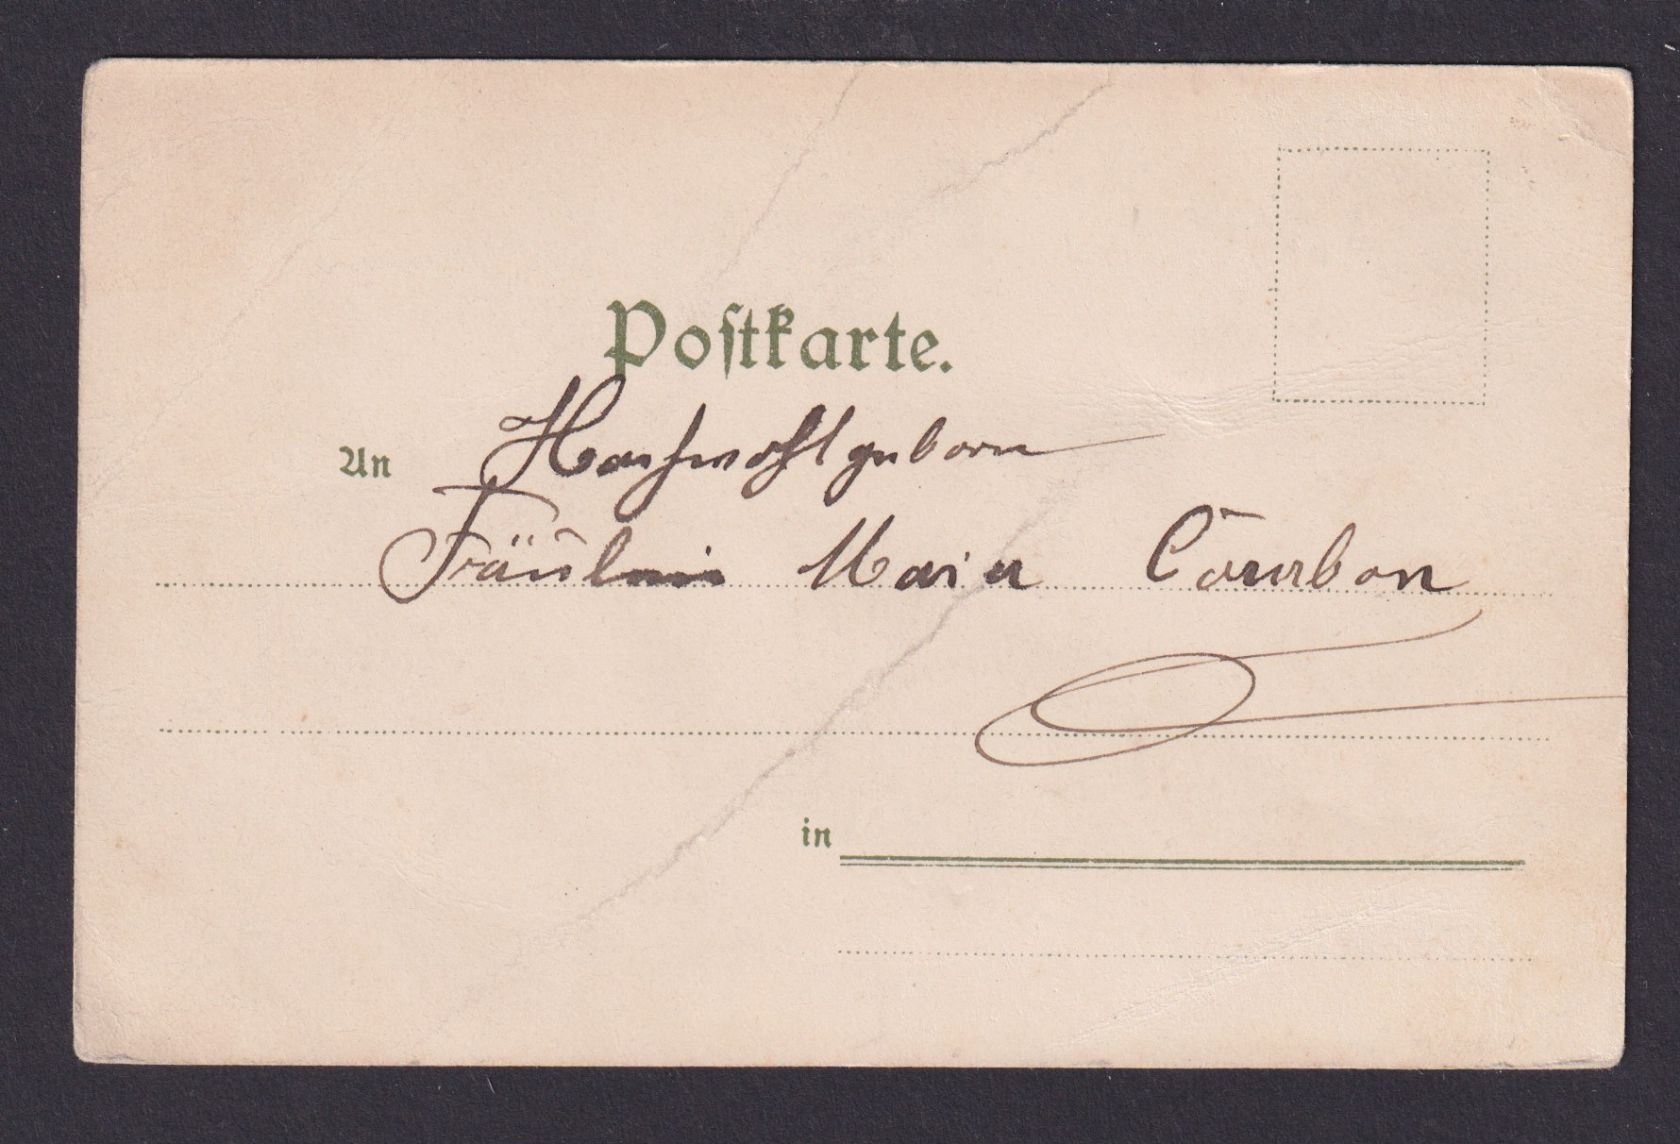 Postkarte.
An Hochwohlgeborn
Fräulein Maria Courbon
in